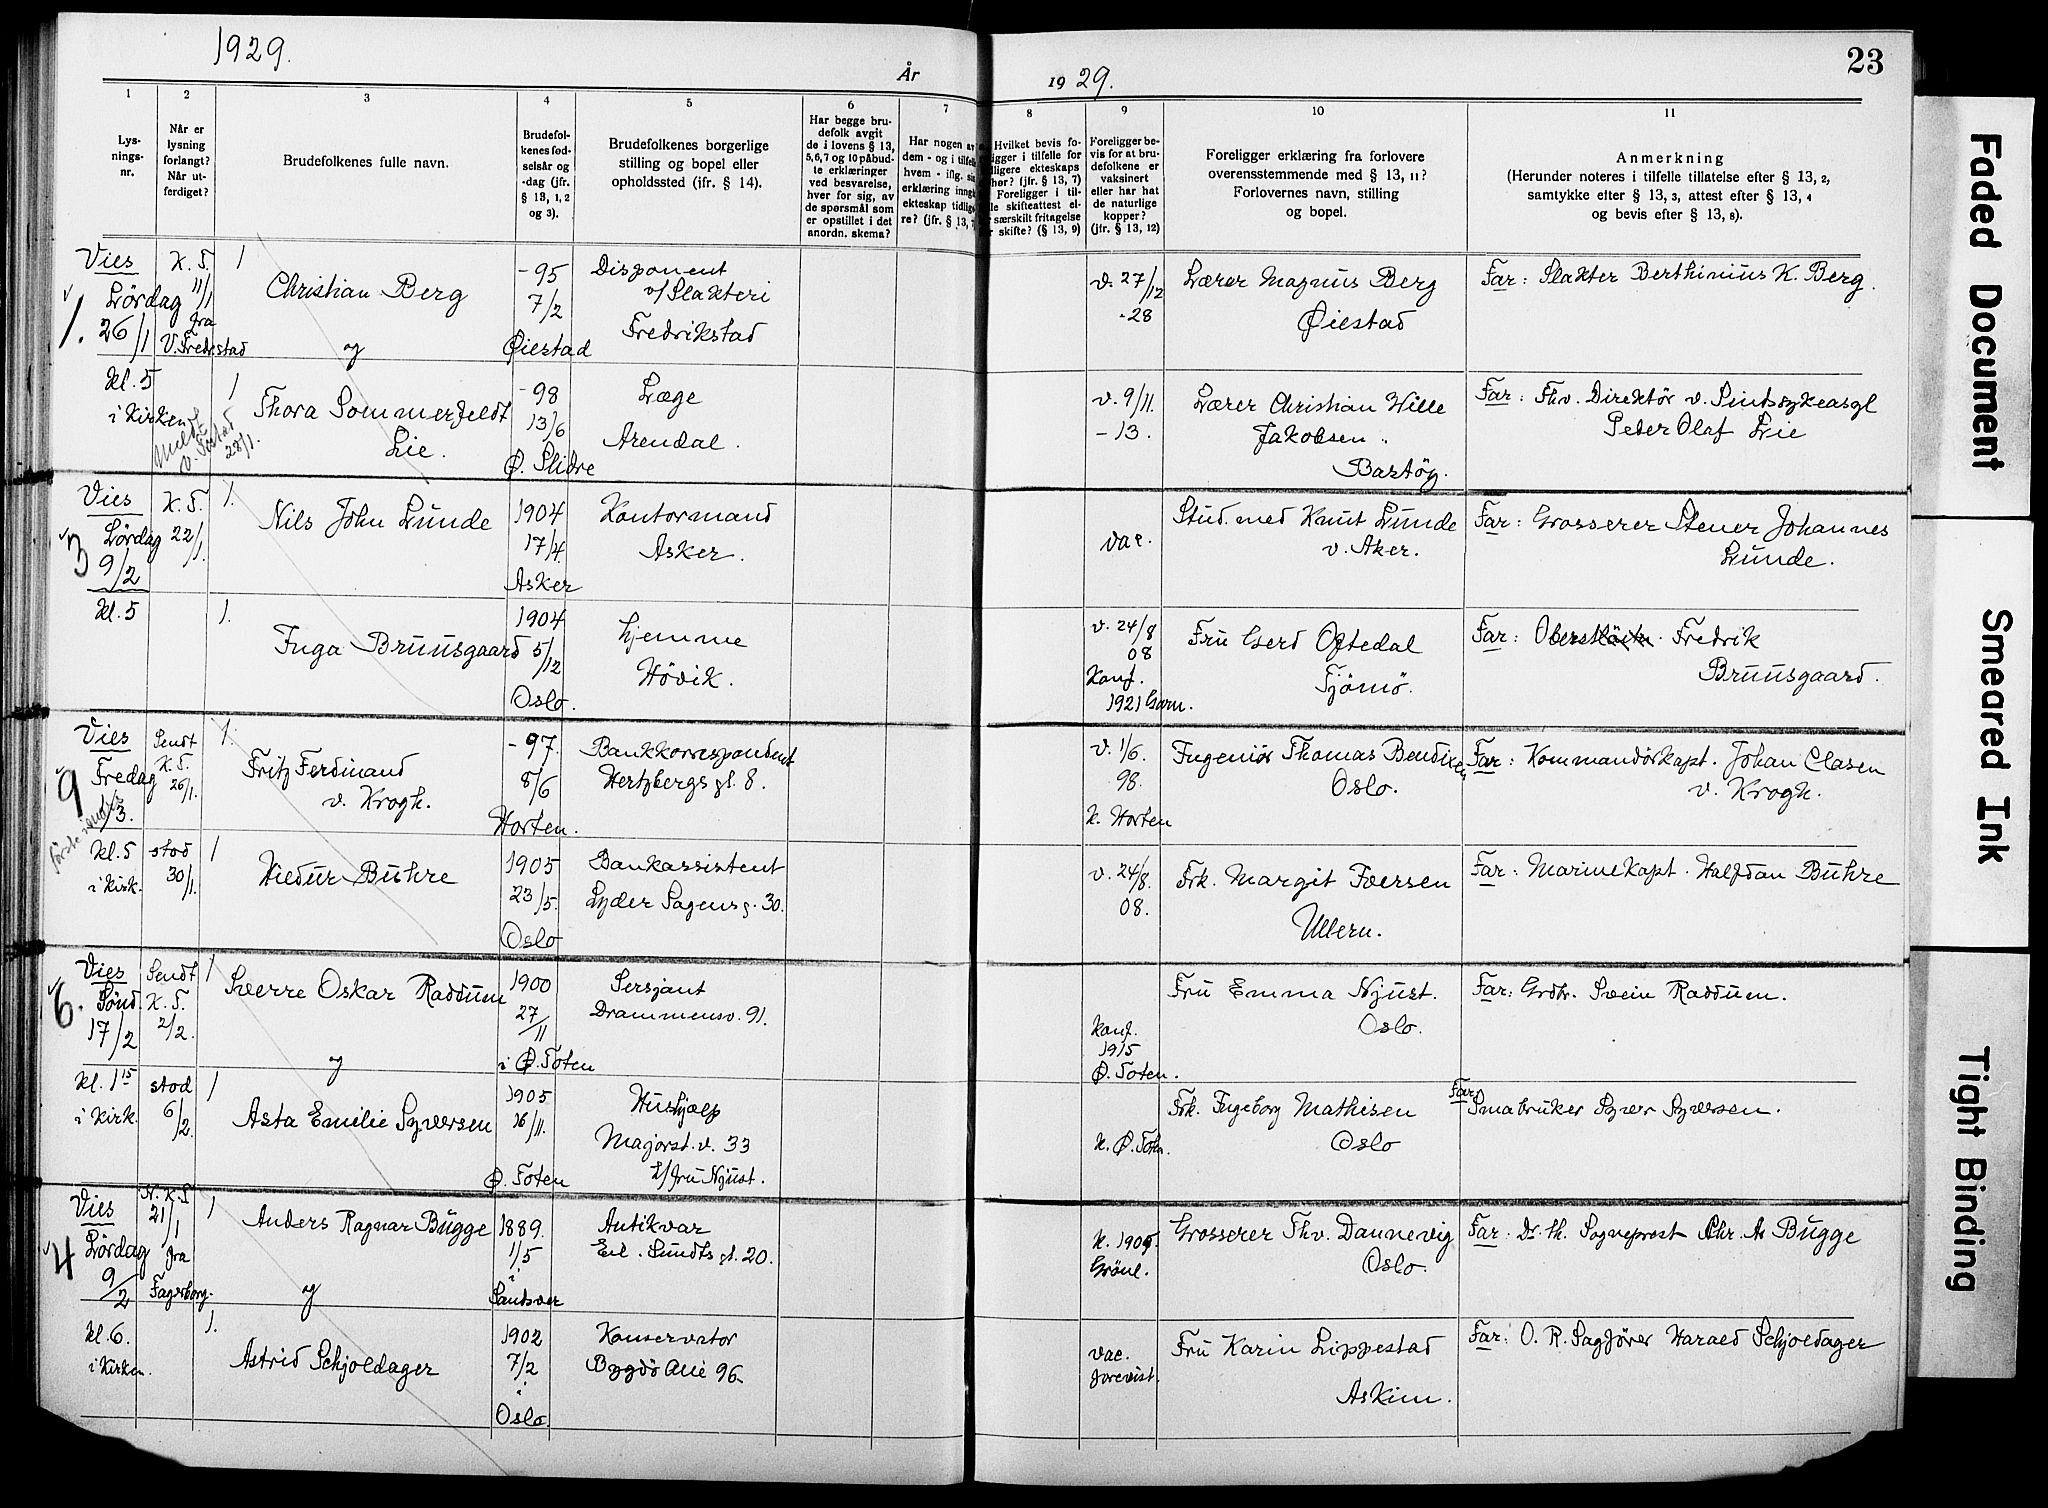 1929.
År
19 29.
23
1
2
3
4
5
6
7
8
9
10
11
Lys-
nings-
nr.
Når er
lysning
forlangt?
Når ut-
ferdiget?
Brudefolkenes fulle navn.
Brudefol-
kenes fød-
selsår og
-dag (jfr.
§ 13, 1, 2
og 3).
Brudefolkenes borgerlige
stilling og bopel eller
opholdssted (jfr. § 14).
Har begge bru-
defolk avgit
de i lovens § 13,
5,6,7 og 10 påbud-
te erklæringer
ved besvarelse,
hver for sig, av
de spørsmål som
er opstillet i det
anordn. skema?
Har nogen av
dem - og i tilfelle
hvem - iflg. sin
erklæring inngått
ekteskap tidligere
re? (jfr. § 13, 7)
Hvilket bevis fo-
ligger i tilfelle for
dligere ekteskaps
hør? (jfr. § 13, 7)
Foreligger i til-
lle skifteattest el-
særskilt fritagelse
r skifte? (§ 13, 9)
Foreligger be-
vis for at bru-
defolkene er
vaksinert
eller har hat
de naturlige
kopper?
(jfr. § 13, 12)
Foreligger erklæring fra forlovere
overensstemmende med § 13, 11?
Forlovernes navn, stilling
og bopel.
Anmerkning
(Herunder noteres i tilfelle tillatelse efter § 13, 2,
samtykke efter § 13, 3, attest efter § 13, 4
og bevis efter § 13, 8).
1.
Vies
Lördag
26/1
kl. 5
i Kirken
K. T.
11/1
fra
V. Fredrstad
1
Christian Berg
og
- 95
7/2
Øiestad
Disponent
v/ Slakteri
Fredrikstad
v. 27/12
- 28
Lærer Magnus Berg
Øiestad
Far: Slakter Berthinius K. Berg.
1
Thora Sommerfeldt
Lie.
- 98
13/6
Ø. Slidre
Læge
Arendal.
v. 9/11.
- 13.
Lærer Christian Wille
Jakobsen
Bastöy.
Far: Fhv. Direktör v. Sindssykeasyl
Peder Olaf Lie
3
Vies
Lördag
9/2
kl. 5
K. T.
22/1.
1.
Nils John Lunde
1904
17/4.
Asker
Kontormand
Asker.
vac.
Stud. med Knut Lunde
v. Aker.
Far: Grosserer Stener Johannes
Lunde.
1.
Inga Bruusgaard
1904
5/12
Oslo.
hjemme
Hövik.
v. 24/8
08
Konf.
1921 Garn.
Fru Gerd Oftedal
Tjömö.
Far: Fredrik
Bruusgaard.
9
Vies
Fredag
1/3.
kl. 5
i Kirk.
Sendt
K. T.
26/1.
stod
30/1.
1.
Fritz Ferdinand
v. Krogh.
- 97.
8/6
Horten.
Bankkorrespondent
Hertzbergs gt. 8.
v. 1/6.
98.
K. Horten
Ingeniør Thomas Bendixen
Oslo.
Far: Kommandörkapt. Johan Clasen
v. Krogh.
1
Hiedur Buhre
1905
23/5.
Oslo
Bankassistent
Lyder Sagens g. 30.
v. 24/8.
08.
Frk. Margit Foersen
Ullern.
Far: Marinekapt. Halfdan Buhre
6.
Vies
Sönd.
17/2
kl. 1 15
i Kirk.
Sendt
K. T.
2/2.
stod
6/2.
1
Sverre Oskar Raddum
og
1900
27/11
i Ø. Toten
Sersjant
Drammensv. 91.
Konf.
1915
Ø. Toten.
Fru Emma Njust.
Oslo.
Far: Grdbr. Svein Raddum.
1
Asta Emilie Syversen
1905
16/11.
Ø. Toten
Hushjælp
Majorst. v. 33
h/ fru Njust.
K. Ø. Toten.
Frk. Ingeborg Mathisen
Oslo
Far: Småbruker Syver Syversen.
4
Vies
Lördag
9/2
kl. 6.
i Kirken.
N. K. T
21/1
fra
Fagerborg.
1
Anders Ragnar Bugge
og
1889.
1/5
i
Sandsver
Antikvar
Eil. Sundts gt. 20.
K. 1905.
Grönl.
Grosserer Thv. Dannevig
Oslo.
Far: Dr. th. Sogneprest Chr. A. Bugge
1.
Astrid Schjoldager
1902
7/2
i
Oslo.
Konservator
Bygdö Allé 96
vac.
forevist.
Fru Karin Lippestad
Askim.
Far: O. R. Sagförer Harald Schjoldager
Faded Document
Smeared Ink
Tight Binding